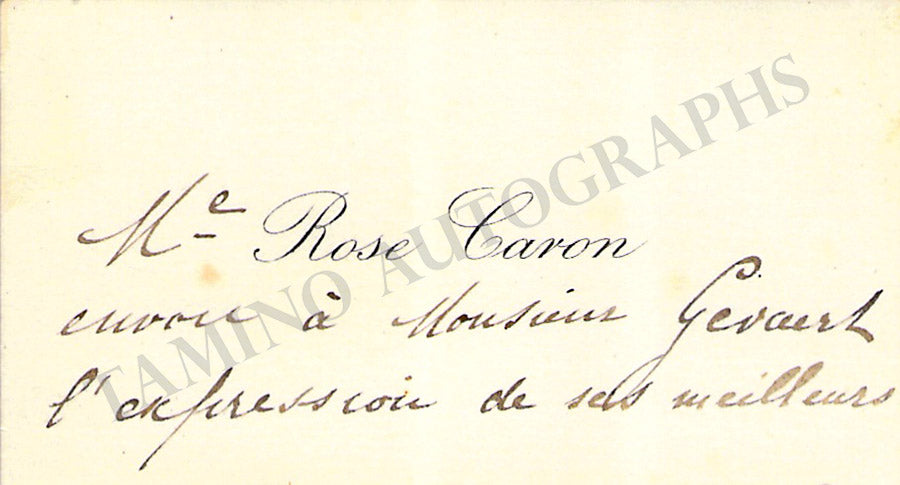 Mᵉ Rose Caron
envoie à Monsieur Gevaert
l'expression de ses meilleurs
TAMINO AUTOGRAPHS